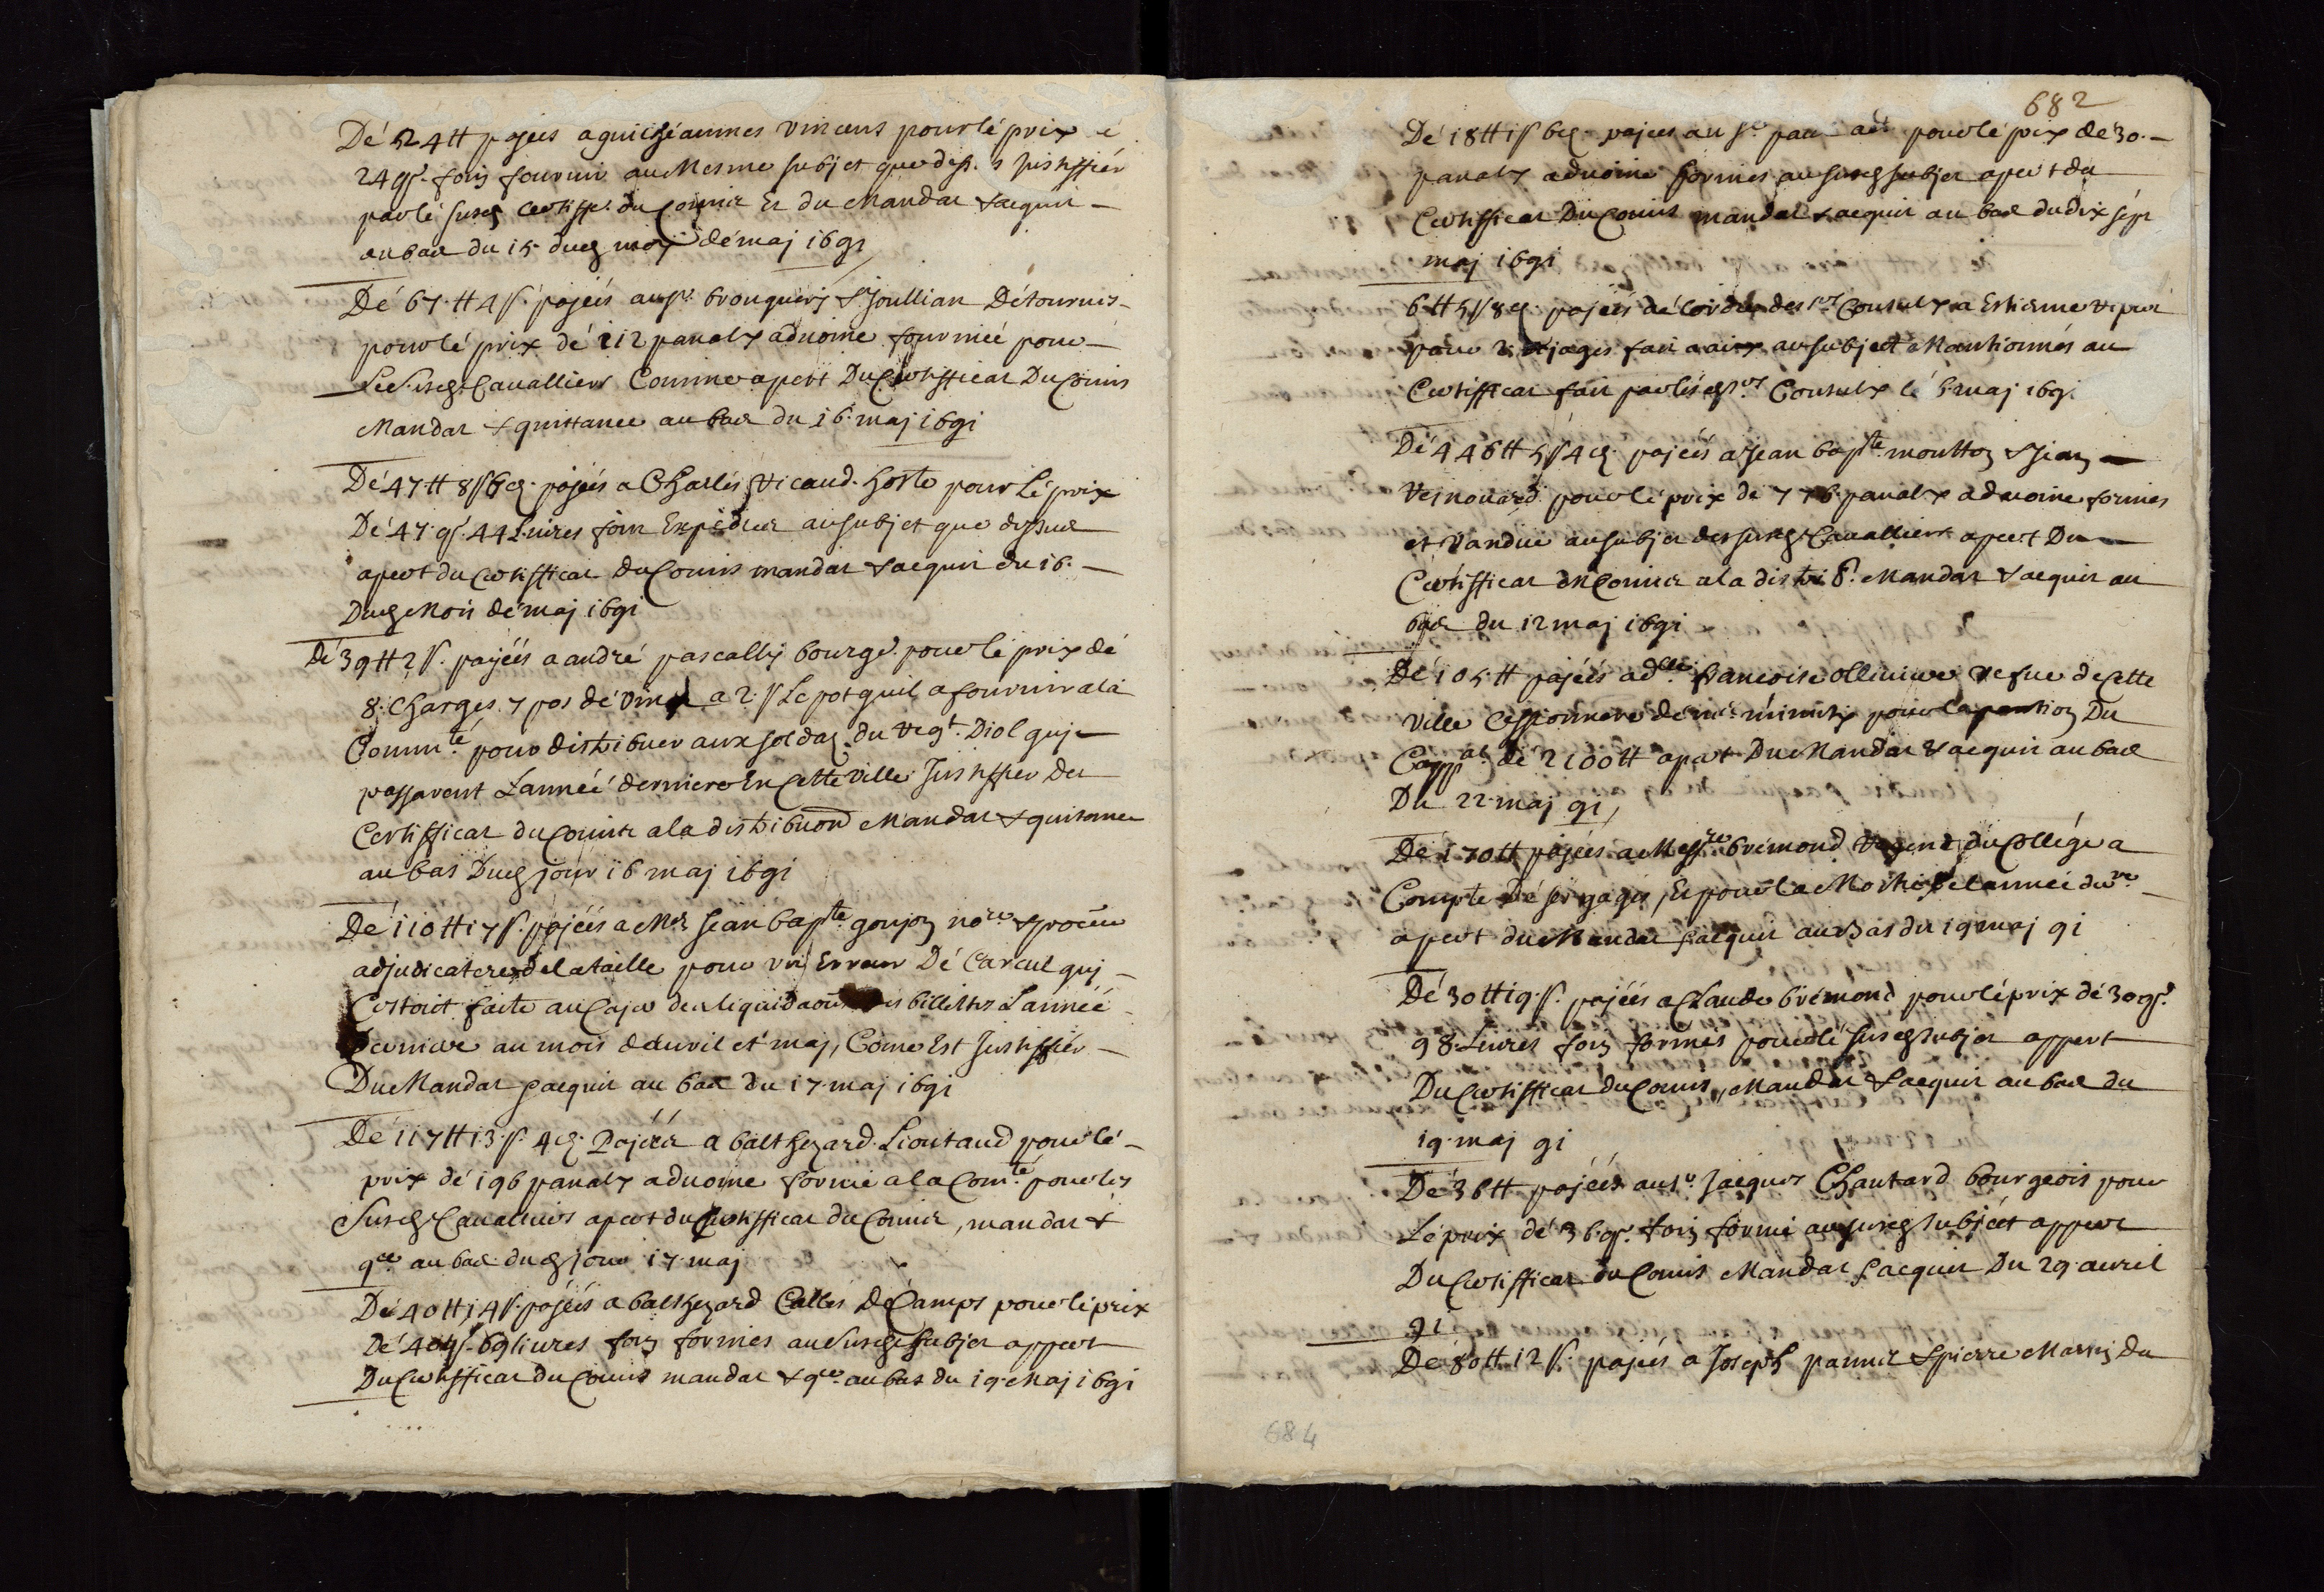 Dé 24 tt payées a guilheaumes vincens pour lé prix
24 q.^x foin fournir au Mesme subjet que dess. Justiffiér
par lé susd certiff. du Commis Et du Mandat & acquit
au bas du 15 dud moy dé maj 1691
Dé 67 tt 4 s. pajéés au s.^r brouquerj & Joullian Détournis
pour lé prix dé 112 panalx advoine fourniéé pour
Les Susd Cavalliers Comme apert Du Certifficat Du Comis
Mandat & quittance au bas du 16 maj 1691
Dé 47 tt 8 s 6 d. pajéés a Charlés Vicaud hoste pour Lé prix
Dé 47 q.^x 44 Livres foin Expediés au subjet que dessus
apert du Certifficat du Comis mandat & acquit du 16.
Dud Mois dé maj 1691
Dé 39 tt 2 s. payéés a andré pascallis bourg.^s pour lé prix dé
8. Charges 7 pos dé vin a 2 s Le pot quil a fournir a la
Comm.^té pour distribuer aux soldas du reg.^t Diol quj
passarent Lannéé derniere En Cette ville Justiffier Du
Certifficat du Comis a la distribuon Mandat & quitance
au bas Dud jour 16 maj 1691
Dé 110 tt 17 s. pajéés a M.^e Jean bap.^te goujon no.^re & procur
adjudicateres de la taille pour un Erreur Dé Carcul quj
Cestoit faite au Cajer de la liquidaon des billettes Lannéé
Derniere au mois dauvril et maj, Come Est Justiffiér
Du Mandat & acquit au bas du 17 maj 1691
Dé 117 tt 13 s. 4 d. Pajéés a balthezard Lioutaud pour lé
prix dé 196 panalx advoine fornie a la Com.^té pour les
Susd Cavalliers apert du Certifficat du Comis, mandat &
q.^ce au bas dud jour 17 maj
Dé 40 tt 14 s. pajéés a balthezard Calles DéCamps pour lé prix
Dé 40 q.^x 69 livres foin fornies au Susd subjet appert
Du Certifficat du Comis mandat & q.^ce au bas du 19 Maj 1691
682
Dé 18 tt 1 s 6 d. pajées au s.^r pour lé prix dé 30.
panalx advoine fornies au susd subjet apert du
Certifficat Du Comis mandat & acquit au bas du dix sept
maj 1691
6 tt 5 s 8 d pajéés dé Lordre des s.^rs Consuls a Estienne
pour 2 vojages fait a aix au subject Mantionnés au
Certifficat fait par lésd s.^rs Consuls lé 6 maj 1691
Dé 446 tt 5 s 4 d. pajéés a Jean bap.^te moutton & Jean
Reinouard pour lé prix dé 776 panalx advoine fornies
et vandue au subjet des susd Cavalliers apert Du
Certifficat du Comis a la distrib.^on Mandat & acquit au
bas du 12 maj 1691
Dé 105 tt pajéés a d.^lle francoise olliviere vefue de Cette
ville Cessionnere de m.^e pour la pantion Du
Capp.^al dé 2100 tt apert Du Mandat & acquit au bas
Du 22 maj 91
Dé 170 tt pajéés a Mess.^re brémond Regent du Collége a
Compte Dé ses gages, Et pour la Moitié de lannéé
apert du Mandat & acquit au Bas du 19 maj 91
Dé 30 tt 19 s. pajéés a Claude brémond pour lé prix dé 30 q.^x
98 Livres foin fornies pour lé susd subjet appert
Du Certifficat du Comis, Mandat & acquit au bas du
19 maj 91
Dé 36 tt pajéés au s.^r Jacques Chautard bourgeois pour
Lé prix dé 36 q.^x foin fornie au susd subjéct appert
Du Certifficat du Comis Mandat & acquit Du 29 auril
91
Dé 80 tt 12 s. pajéés a Joseph & pierre Martin du
684